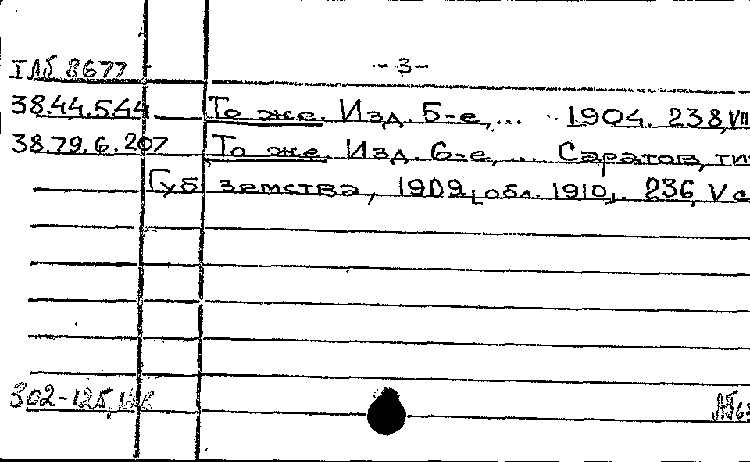 I Лб 8677 -3-
38.44.544 То же. Изд. 5-е,... 1904. 238, VIII
38.79.6.207 То же. Изд. 6-е,... Саратов, тип
Губ земства, 1909, [обл. 1910]. 236, V с
302-125,